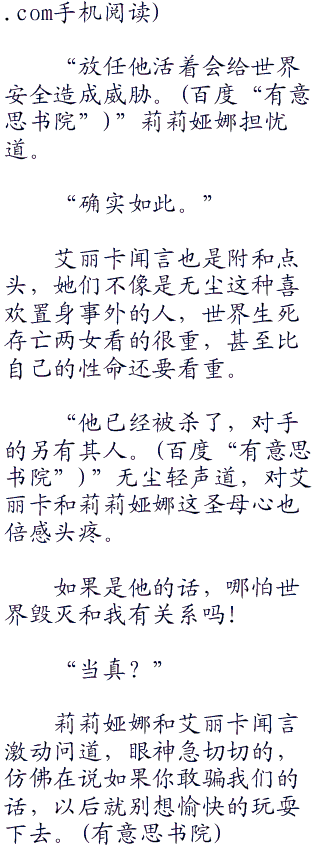 .com手机阅读)
“放任他活着会给世界
安全造成威胁。(百度“有意
思书院”)”莉莉娅娜担忧
道。
“确实如此。”
艾丽卡闻言也是附和点
头，她们不像是无尘这种喜
欢置身事外的人，世界生死
存亡两女看的很重，甚至比
自己的性命还要看重。
“他已经被杀了，对手
的另有其人。(百度“有意思
书院”)”无尘轻声道，对艾
丽卡和莉莉娅娜这圣母心也
倍感头疼。
如果是他的话，哪怕世
界毁灭和我有关系吗！
“当真？”
莉莉娅娜和艾丽卡闻言
激动问道，眼神急切切的，
仿佛在说如果你敢骗我们的
话，以后就别想愉快的玩耍
下去。(有意思书院)